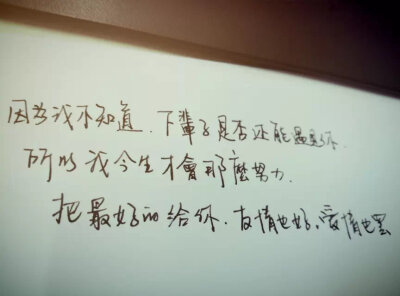 因为我不知道.下輩子是否还能遇見你.
所以我今生才會那麼努力.
把最好的给你.友情也好.爱情也罢